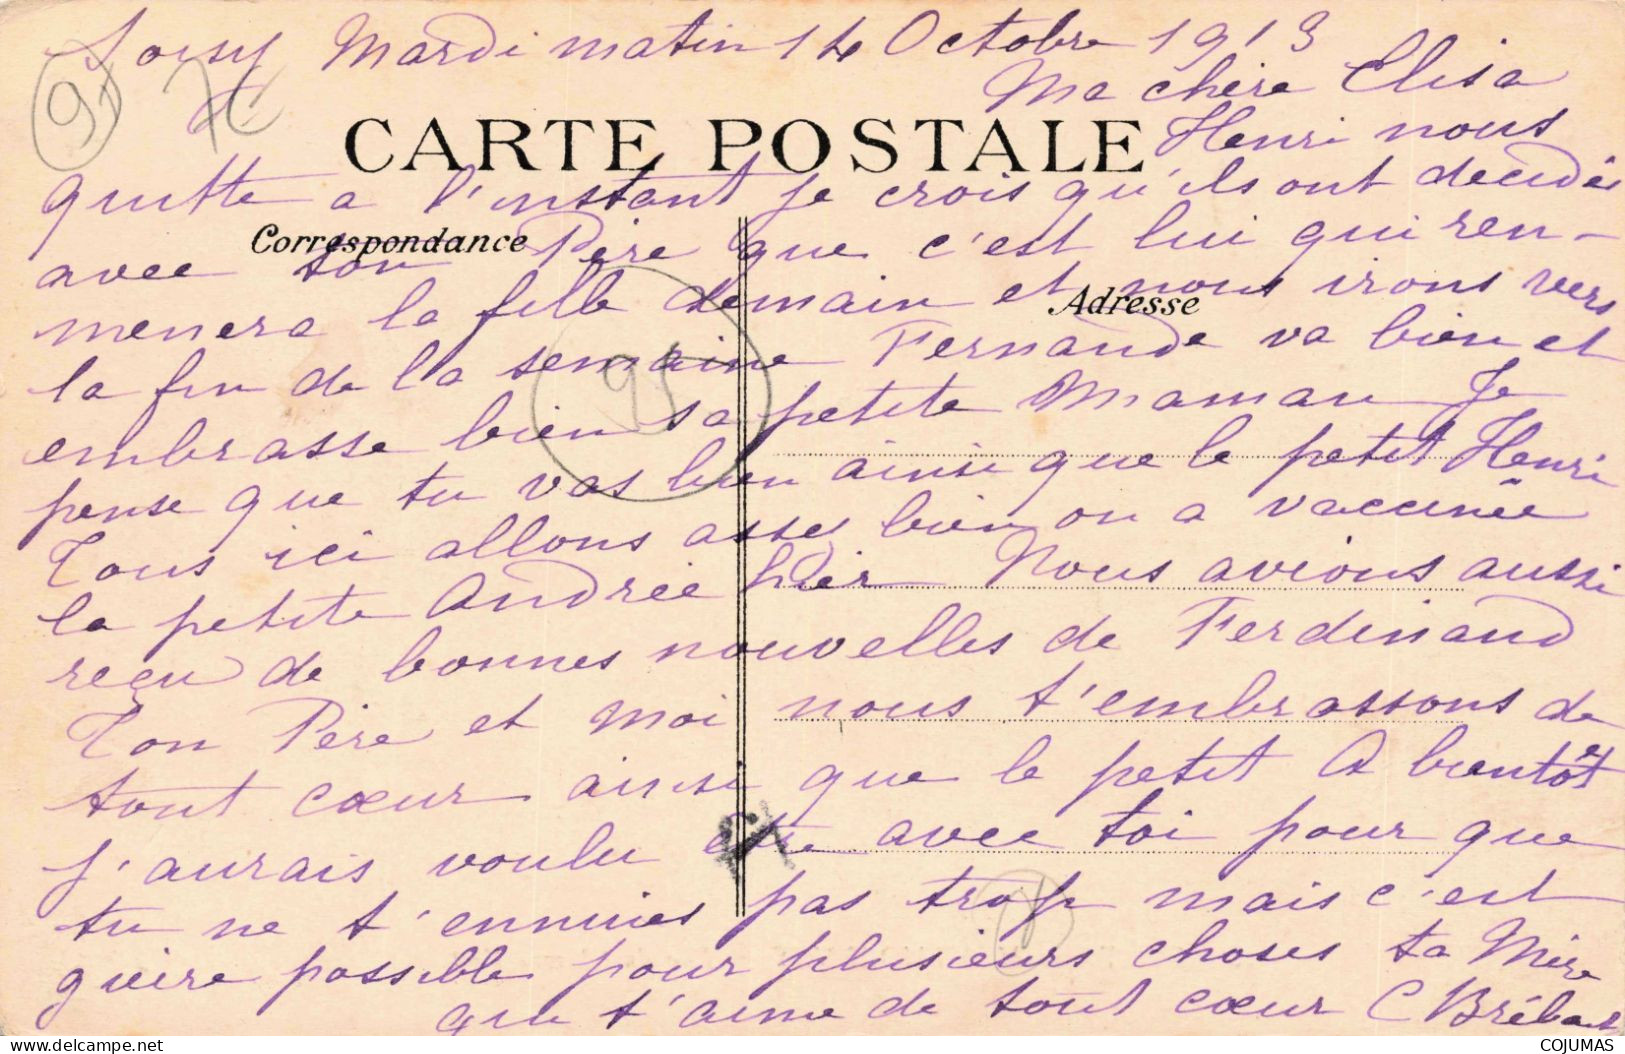 Soisy Mardi matin 14 Octobre 1913
91
Ma chère Elisa
CARTE POSTALE
Henri nous
quitte a l'instant je crois qu'ils ont decidés
Correspondance
avec son Père que c'est lui qui ren-
Adresse
menera la fille demain et nous irons vers
la fin de la semaine Fernande va bien et
91
embrasse bien sa petite Maman Je
pense que tu vas bien ainsi que le petit Henri
Tous ici allons asses bien on a vaccinée
la petite Andrée hier Nous avions aussi
reçu de bonnes nouvelles de Ferdinand
Ton Père et moi nous t'embrassons de
tout cœur ainsi que le petit A bientôt
j'aurais voulu etre avec toi pour que
tu ne t'ennuies pas trop mais c'est
guère possible pour plusieurs choses ta Mère
que t'aime de tout cœur C Brébant
COJUMAS